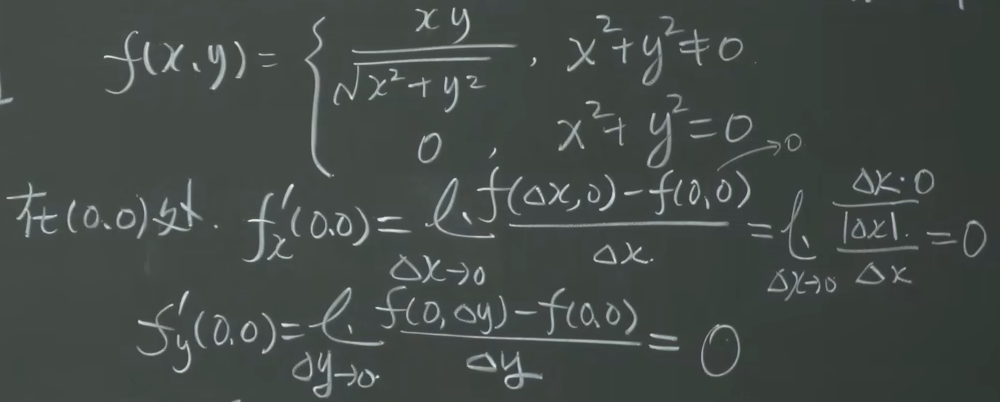 f(x、y) = { xy / √(x²+y²) , x²+y²≠0
0 , x²+y²=0
在(0.0)处. f'ₓ(0.0) = l. Δx→0 (f(Δx,0)-f(0,0)) / Δx. = l. Δx→0 (Δx·0 / |Δx|.) / Δx = 0
→0
f'y(0.0) = l. Δy→0. (f(0,Δy)-f(0.0)) / Δy = 0